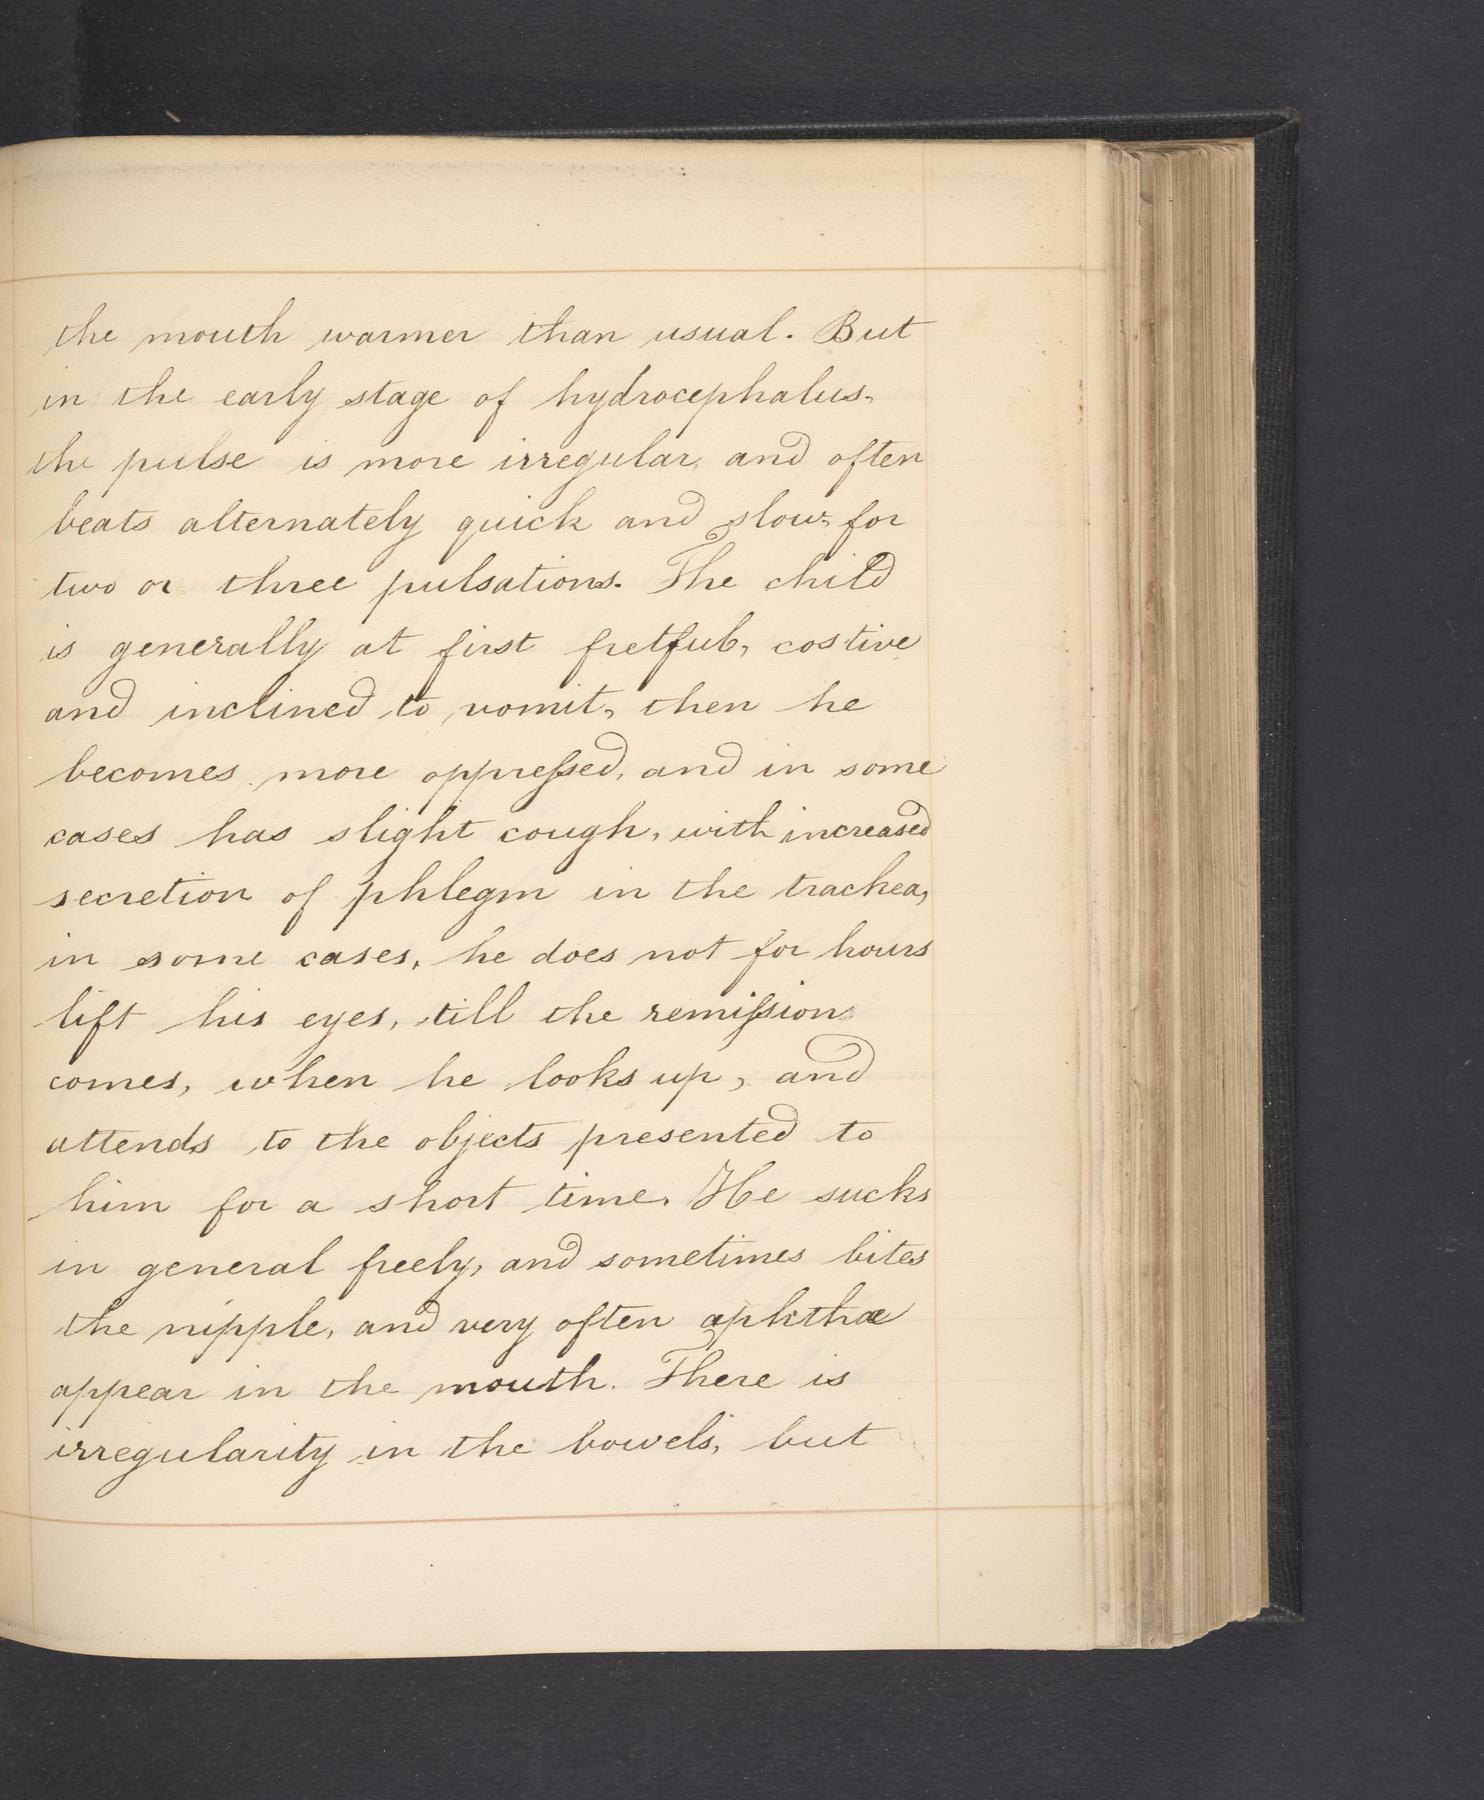 the mouth warmer than usual. But
in the early stage of hydrocephalus,
the pulse is more irregular, and often
beats alternately quick and slow, for
two or three pulsations. The child
is generally at first fretful, costive
and inclined to vomit, then he
becomes more oppreſsed, and in some
cases has slight cough, with increased
secretion of phlegm in the trachea,
in some cases, he does not for hours
lift his eyes, till the remiſsion
comes, when he looks up, and
attends to the objects presented to
him for a short time. He sucks
in general freely, and sometimes bites
the nipple, and very often aphthæ
appear in the mouth. There is
irregularity in the bowels, but